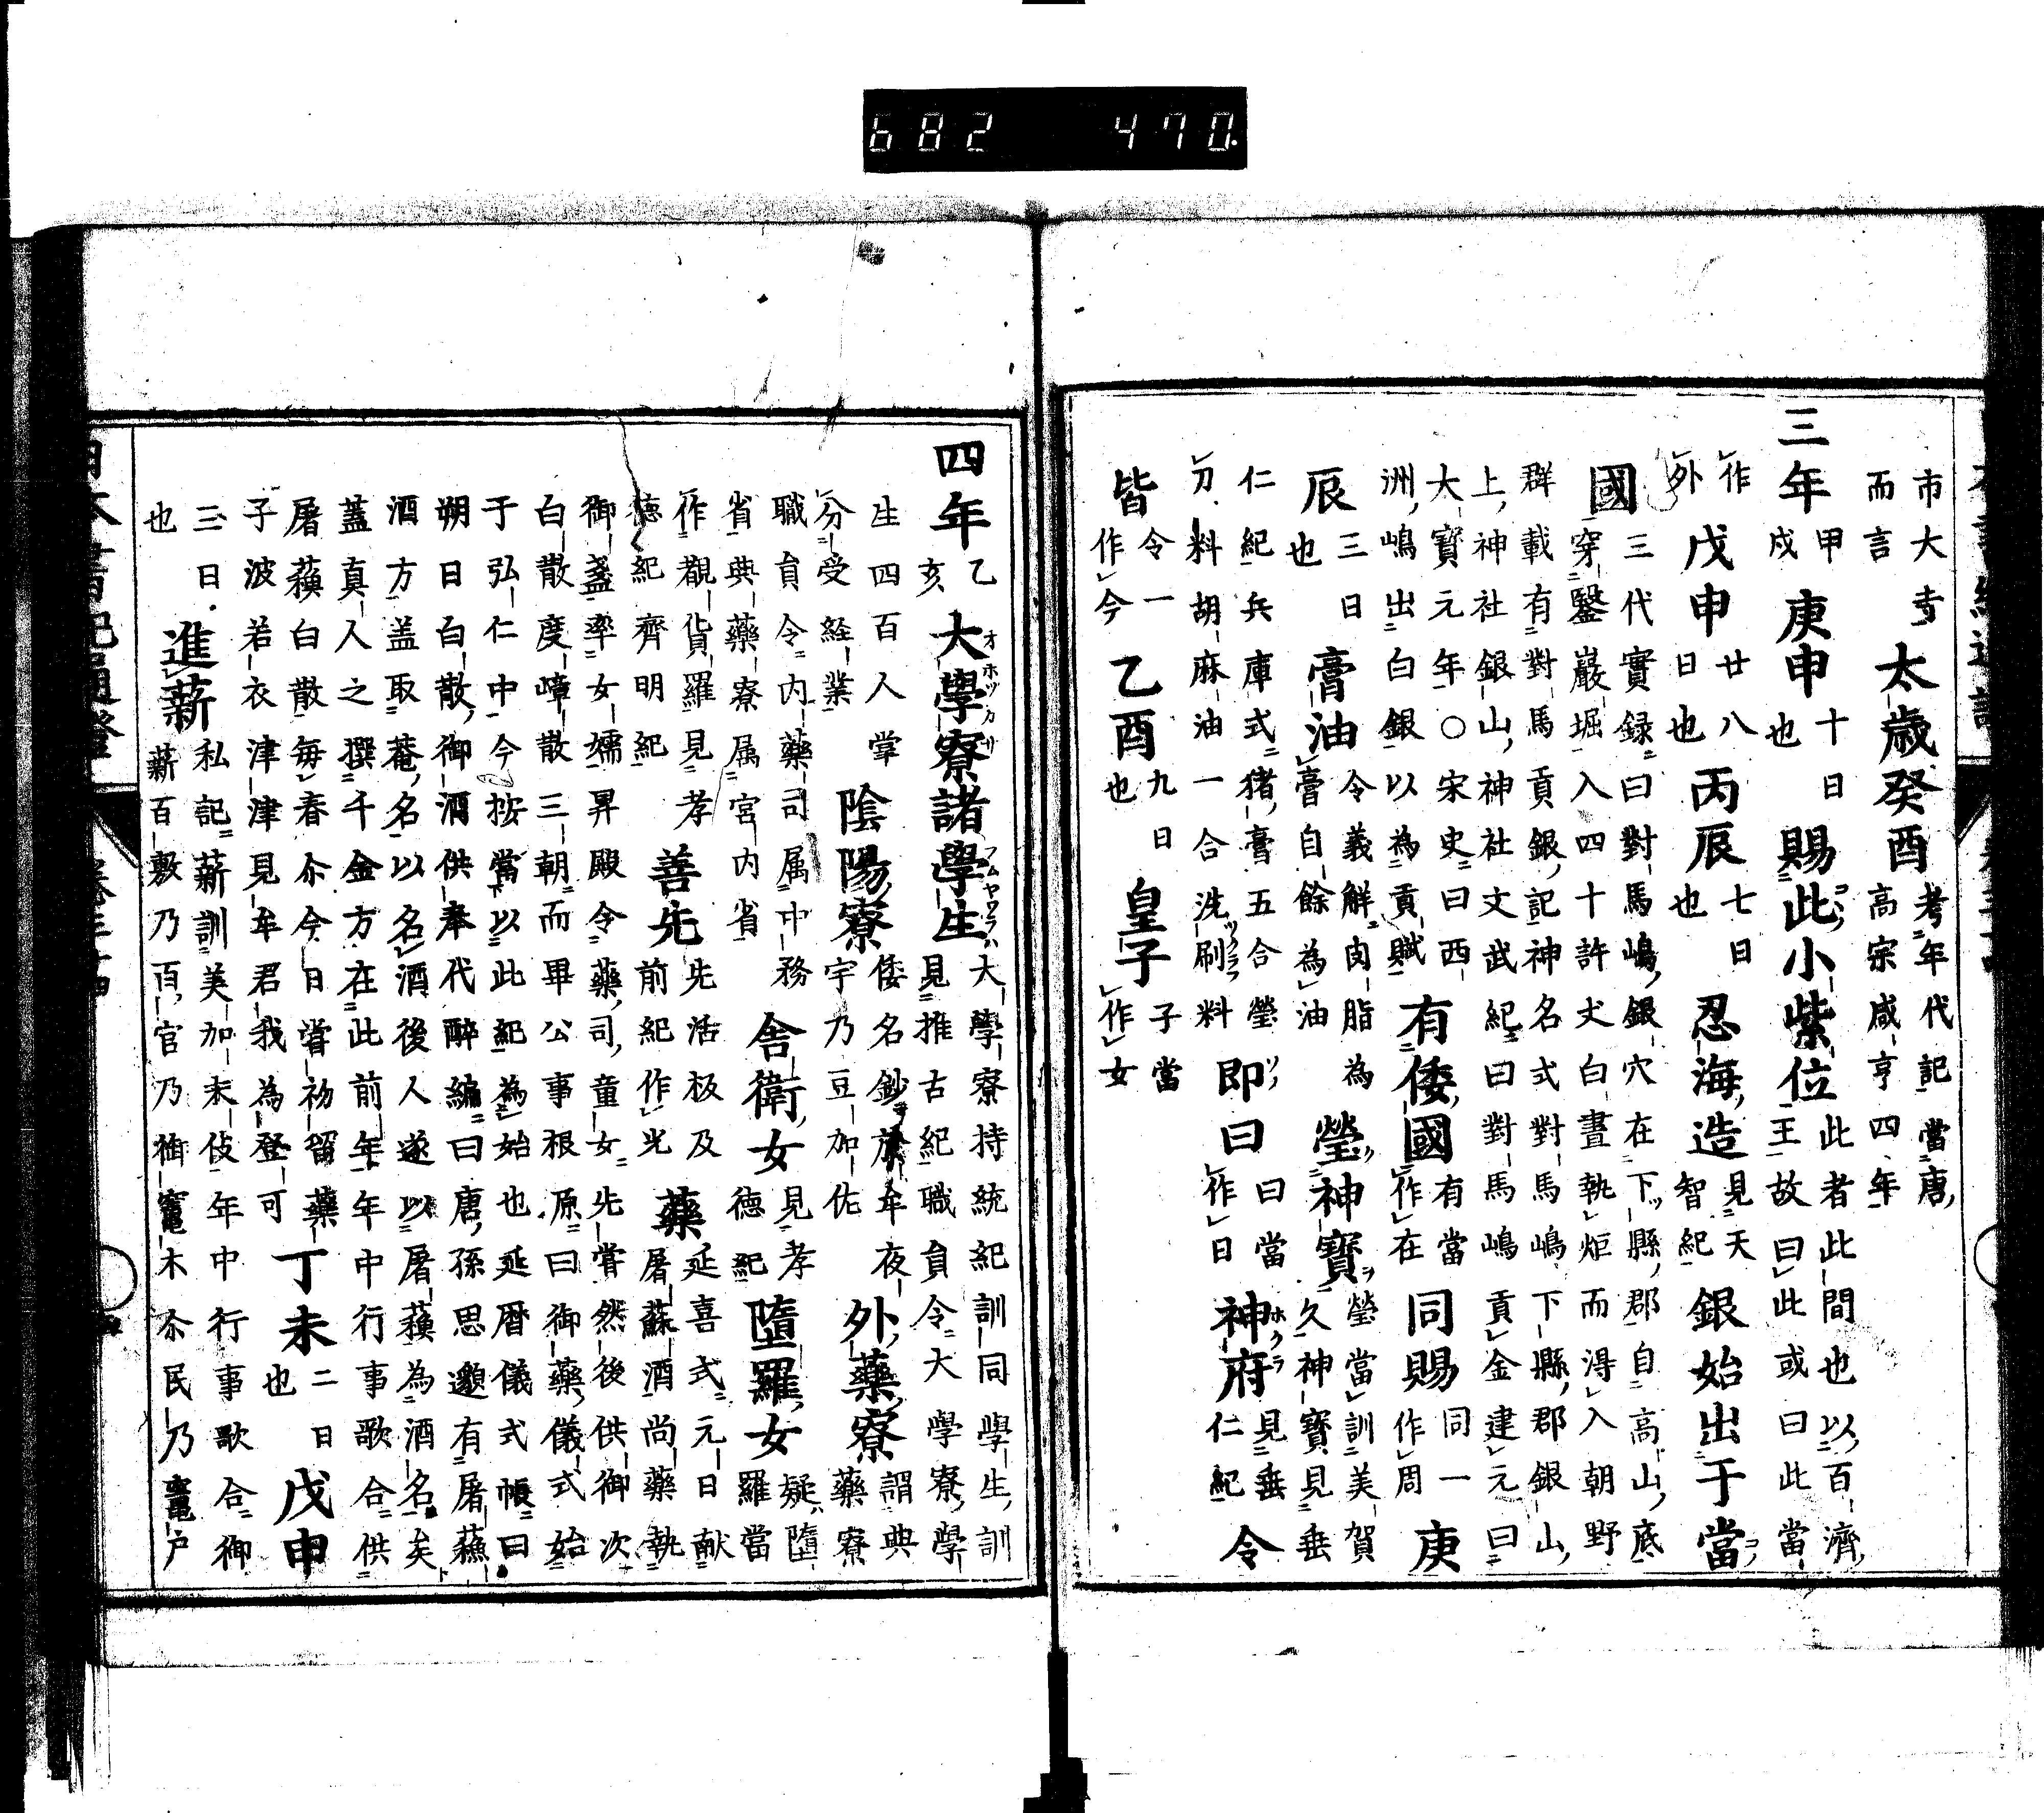 市大寺
而言
太歳癸酉
考年代記當唐
高宗咸亨四年
三年
甲
戌
庚申
十日
也
賜此小紫位
此者此間也以百濟
王故曰此或曰此當
作
外
戊申
廿八
日也
丙辰
七日
也
忍海造
見天
智紀
銀始出于當
國
三代實録曰對馬嶋銀穴在下縣郡自高山底
穿鑿巖堀入四十許丈白晝執炬而淂入朝野
群載有對馬貢銀記神名式對馬嶋下縣郡銀山
上神社銀山神社文武紀曰對馬嶋貢金建元曰
大寶元年○宋史曰西
洲嶋出白銀以為貢賦
有倭國
有當
作在
同賜
同一
作周
庚
辰
三日
也
膏油
令義解肉脂為
膏自餘為油
瑩神寶
瑩當訓美賀
久神寶見垂
仁紀兵庫式猪膏五合瑩
刀料胡麻油一合洗刷料
即曰
曰當
作日
神府
見垂
仁紀
令
皆
令一
作今
乙酉
九日
也
皇子
子當
作女
四年
乙
亥
大學寮諸學生
大學寮持統紀訓同學生訓
見推古紀職員令大學寮學
生四百人掌
分受経業
陰陽寮
倭名鈔於牟夜
宇乃豆加佐
外藥寮
謂典
藥寮
職員令内藥司属中務
省典藥寮属宮内省
舎衛女
見孝
德紀
墮羅女
疑墮
羅當
作覩貨羅見孝
德紀齊明紀
善先
先活板及
前紀作光
藥
延喜式元日献
屠蘇酒尚藥執
御盞率女孺昇殿令藥司童女先嘗然後供御次
白散度嶂散三朝而畢公事根原曰御藥儀式始
于弘仁中今按當以此紀為始也延暦儀式帳曰
朔日白散御酒供奉代醉編曰唐孫思邈有屠蘓
酒方盖取菴名以名酒後人遂以屠蘓為酒名矣
蓋真人之撰千金方在此前年年中行事歌合供
屠蘓白散毎春尒今日嘗初留藥
子波若衣津津見牟君我為登可
丁未
二日
也
戊申
三日
也
進薪
私記薪訓美加末伎年中行事歌合御
薪百敷乃百官乃袖竈木尒民乃竈戸